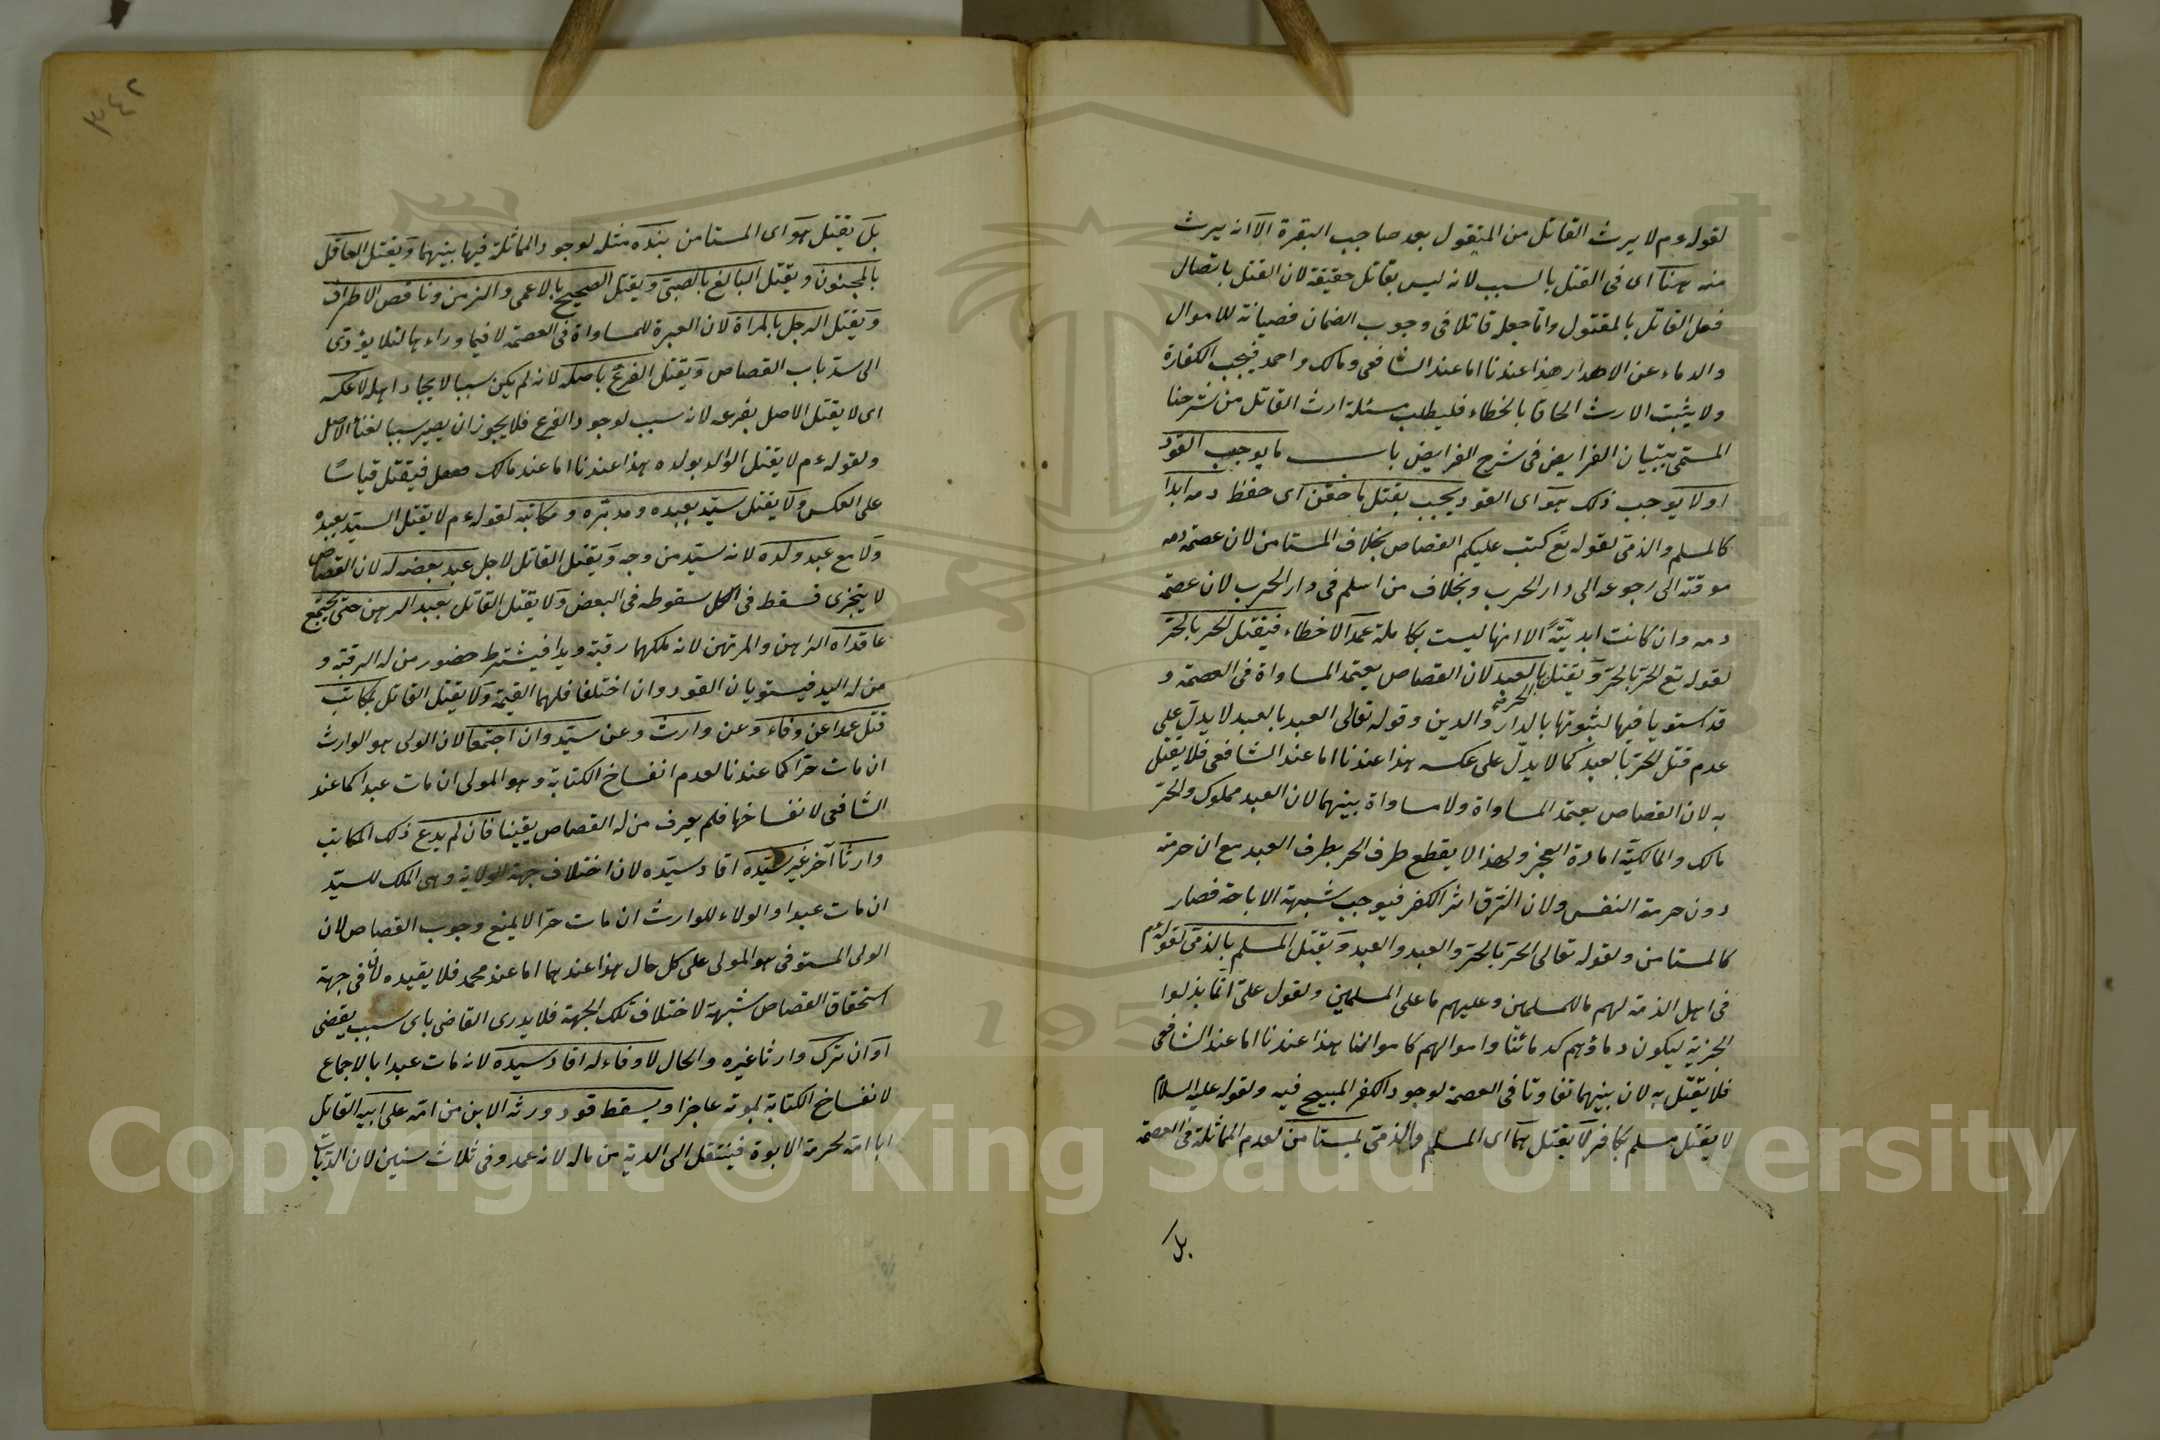 لقوله ءم لا يرث القاتل من المقتول بعد صاحب البقرة الا انه يرث
منه هنا اى فى القتل بالسبب لانه ليس بقاتل حقيقة لان القتل باتصال
فعل القاتل بالمقتول وانما جعل قاتلا فى وجوب الضمان فصيانة للاموال
والدماء عن الاهدار هذا عندنا اما عند الشافعى ومالك واحمد فيجب الكفارة
ولا يثبت الارث الحاقا بالخطاء فليطلب مسئلة ارث القاتل من شرحنا
المسمى بتبيان الفرايض فى شرح الفرايض باب ما يوجب القود
اولا يوجب ذلك هو اى القود يجب بقتل ما حقن اى حفظ دمه ابدا
كالمسلم والذمى لقوله تع كتب عليكم القصاص بخلاف المستامن لان عصمة دمه
موقتة الى رجوعه الى دار الحرب وبخلاف من اسلم فى دار الحرب لان عصمة
دمه وان كانت ابديّة الا انها ليست بكاملة عمدا لا خطاء فيقتل الحر بالحر
لقوله تع الحر بالحر ويقتل الحر بالعبد لان القصاص يعتمد المساواة فى العصمة و
قد استويا فيها لثبوتها بالدار والدين وقوله تعالى العبد بالعبد لا يدل على
عدم قتل الحر بالعبد كما لا يدل على عكسه هذا عندنا اما عند الشافعى فلا يقتل
به لان القصاص يعتمد المساواة ولا مساواة بينهما لان العبد مملوك والحر
مالك والمالكية امارة العجز ولهذا لا يقطع طرف الحر بطرف العبد مع ان حرمته
دون حرمة النفس ولان الرق اثر الكفر فيوجب شبهة الاباحة فصار
كالمستامن ولقوله تعالى الحر بالحر والعبد والعبد ويقتل المسلم بالذمى لقوله ءم
فى اهل الذمة لهم ما للمسلمين وعليهم ما على المسلمين ولقول على انما بذلوا
الجزية ليكون دماؤهم كدمائنا واموالهم كاموالنا هذا عندنا اما عند الشافعى
فلا يقتل به لان بينهما تفاوتا فى العصمة لوجود الكفر المبيح فيه ولقوله عليه السلام
لا يقتل مسلم بكافر لا يقتل هما اى المسلم والذمى بمستامن لعدم المماثلة فى العصمة
بل
٣٤٢
بل يقتل هو اى المستامن بنده مثله لوجود المماثلة فيها بينهما ويقتل العاقل
بالمجنون ويقتل البالغ بالصبى ويقتل الصحيح بالاعمى والزمن وناقص الاطراف
ويقتل الرجل بالمراة لان العبرة للمساواة فى العصمة لا فيما وراءها لئلا يؤدى
الى سد باب القصاص ويقتل الفرع باصله لانه لم يكن سببا لايجاد اهله لا عكسه
اى لا يقتل الاصل بفرعه لانه سبب لوجود الفرع فلا يجوز ان يصير سببا لفناء الاصل
ولقوله ءم لا يقتل الوالد بولده هذا عندنا اما عند مالك فيقتل قياسًا
على العكس ولا يقتل سيّد بعبده ومدبّره ومكاتبه لقوله ءم لا يقتل السيّد بعبده
ولا مع عبد ولده لانه سيّد من وجه ويقتل القاتل لاجل عبد بعضه له لان القصاص
لا يتجزى فسقط فى الكل سقوطه فى البعض ولا يقتل القاتل بعبد الرهن حتى يجتمع
عاقداه الراهن والمرتهن لانه ملكهما رقبة ويدا فيشترط حضور من له الرقبة و
من له اليد فيستويان القود وان اختلفا فلهما القيمة ولا يقتل القاتل بمكاتب
قتل عمدا عن وفاء وعن وارث وعن سيّد وان اجتمعا لان الولى هو الوارث
ان مات حرّا كما عندنا لعدم انفساخ الكتابة وهو المولى ان مات عبدا كما عند
الشافعى لانفساخها فلم يعرف من له القصاص يقينا فان لم يدع ذلك المكاتب
وارثا آخر غير سيّده اقاد سيّده لان اختلاف جهة الولاية وهى الملك للسيّد
ان مات عبدا والولاء للوارث ان مات حرّا لا يمنع وجوب القصاص لان
الولى المستوفى هو المولى على كل حال هذا عندهما اما عند محمد فلا يقيده لان فى جهة
استحقاق القصاص شبهة لاختلاف تلك الجهة فلا يدرى القاضى باى سبب يقضى
او ان ترك وارثا غيره والحال لا وفاء له اقاد سيده لانه مات عبدا بالاجماع
لانفساخ الكتابة بموته عاجزا ويسقط قود ورثه الابن من امّه على ابيه القاتل
ابا امّه لحرمة الابوة فينتقل الى الدية من ماله لانه عمد وفى ثلاث سنين لان الديات
Copyright © King Saud University